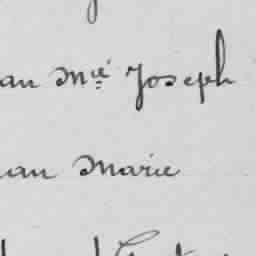 an Mie Joseph
an Marie